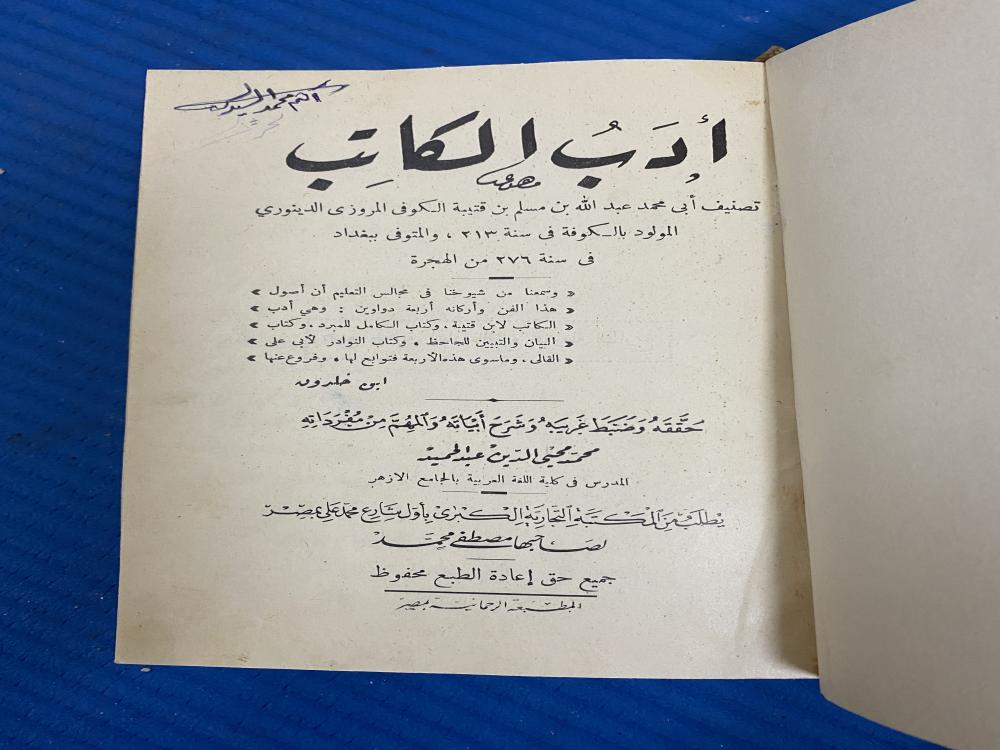 محمد السيد
أدَبُ الكاتِب
تصنيف أبي محمد عبد الله بن مسلم بن قتيبة الكوفى المروزى الدينوري
المولود بالكوفة فى سنة ٢١٣ ، والمتوفى ببغداد
فى سنة ٢٧٦ من الهجرة
« وسمعنا من شيوخنا فى مجالس التعليم أن أصول »
« هذا الفن وأركانه أربعة دواوين : وهي أدب »
« الكاتب لابن قتيبة ، وكتاب الكامل للمبرد ، وكتاب »
« البيان والتبيين للجاحظ ، وكتاب النوادر لأبى على »
« القالى ، وماسوى هذه الأربعة فتوابع لها ، وفروع عنها »
ابن خلدون
حَقَّقَهُ وَضَبَطَ غَرِيبَهُ وَشَرَحَ أَبْيَاتَهُ وَالمُهِمَّ مِنْ مُفْرَدَاتِهِ
محمد محيي الدين عبد الحميد
المدرس فى كلية اللغة العربية بالجامع الأزهر
يطلب من المكتبة التجارية الكبرى بأول شارع محمد على بمصر
لصاحبها مصطفى محمد
جميع حق إعادة الطبع محفوظ
المطبعة الرحمانية بمصر